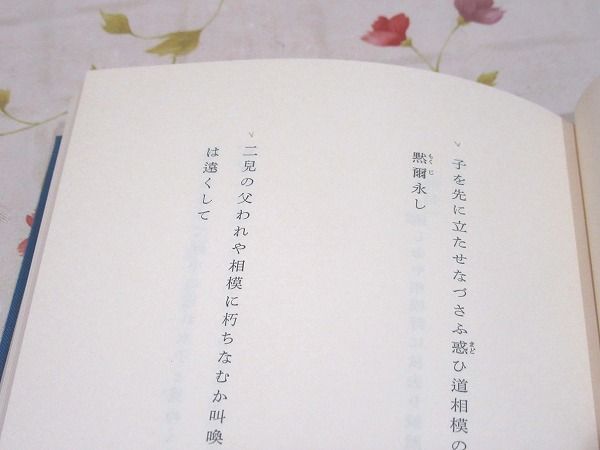 子を先に立たせなづさふ惑ひ道相模の
黙爾永し
二兒の父われや相模に朽ちなむか叫喚
は遠くして